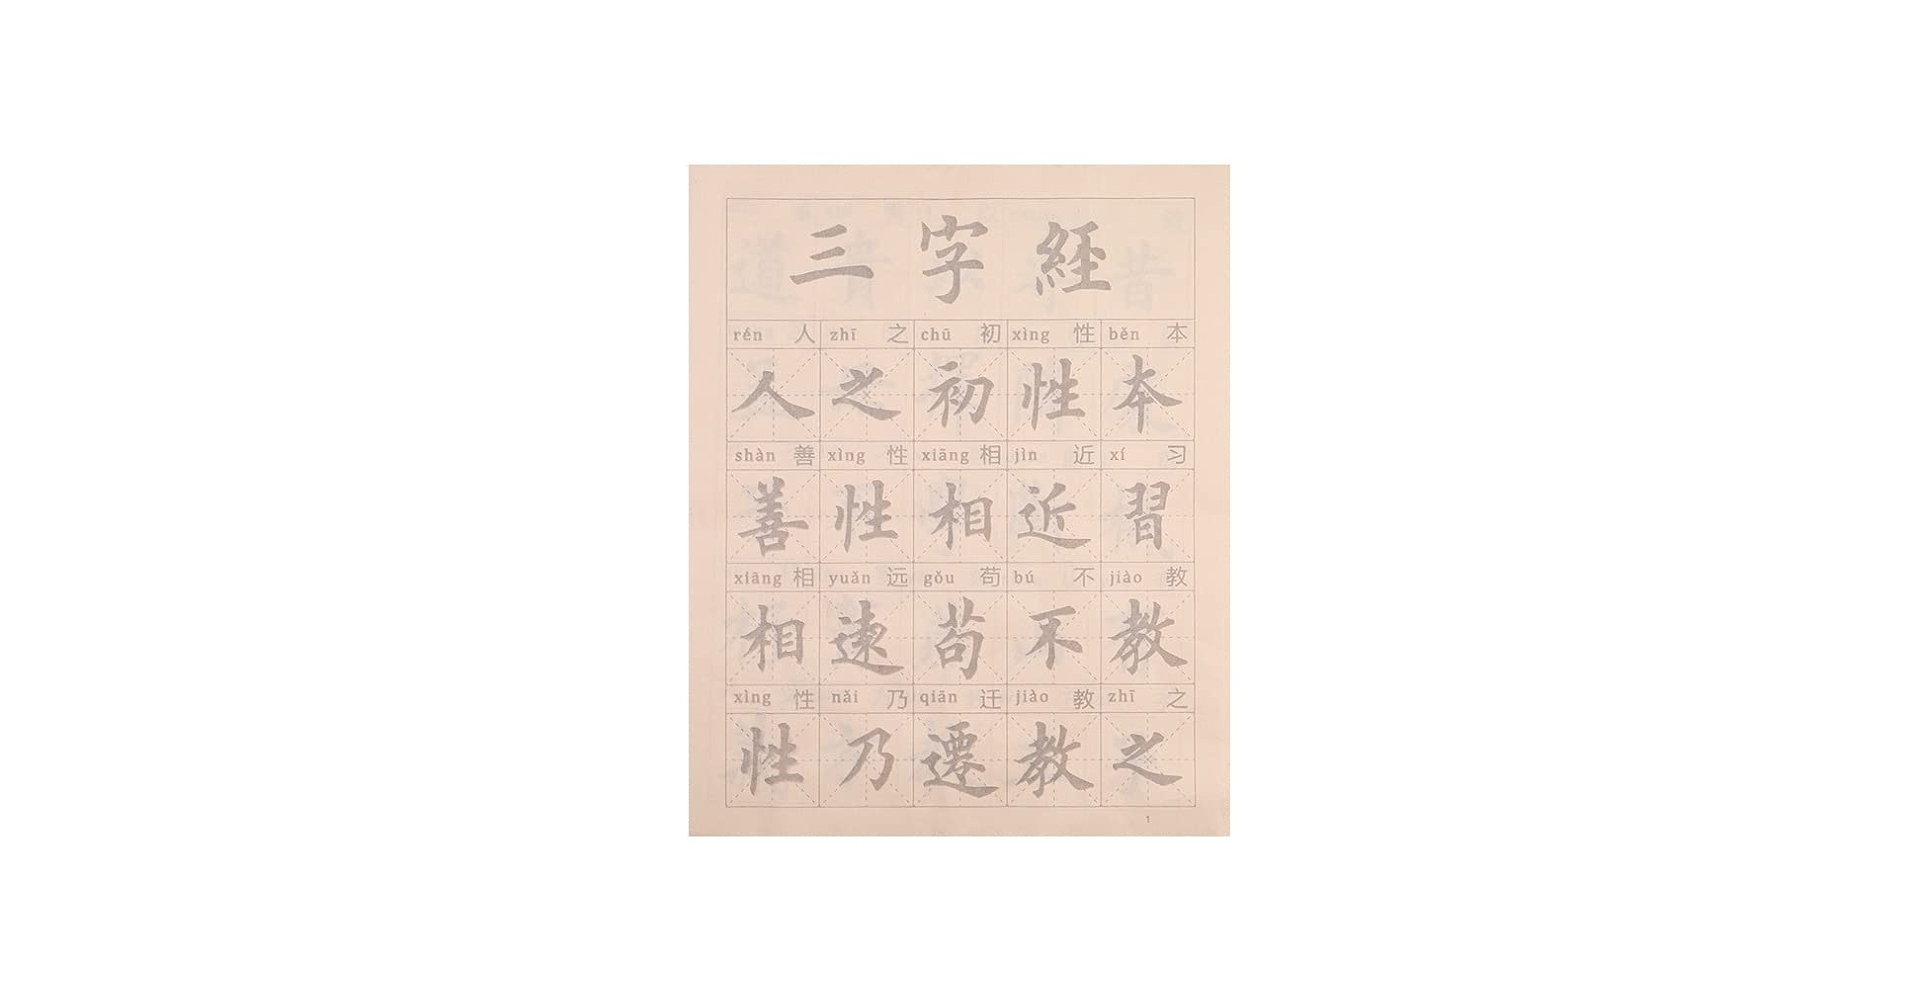 三字經
rén 人 zhī 之 chū 初 xìng 性 běn 本
人之初性本
shàn 善 xìng 性 xiāng 相 jìn 近 xí 习
善性相近習
xiāng 相 yuǎn 远 gǒu 苟 bú 不 jiào 教
相遠苟不教
xìng 性 nǎi 乃 qiān 迁 jiào 教 zhī 之
性乃遷教之
1